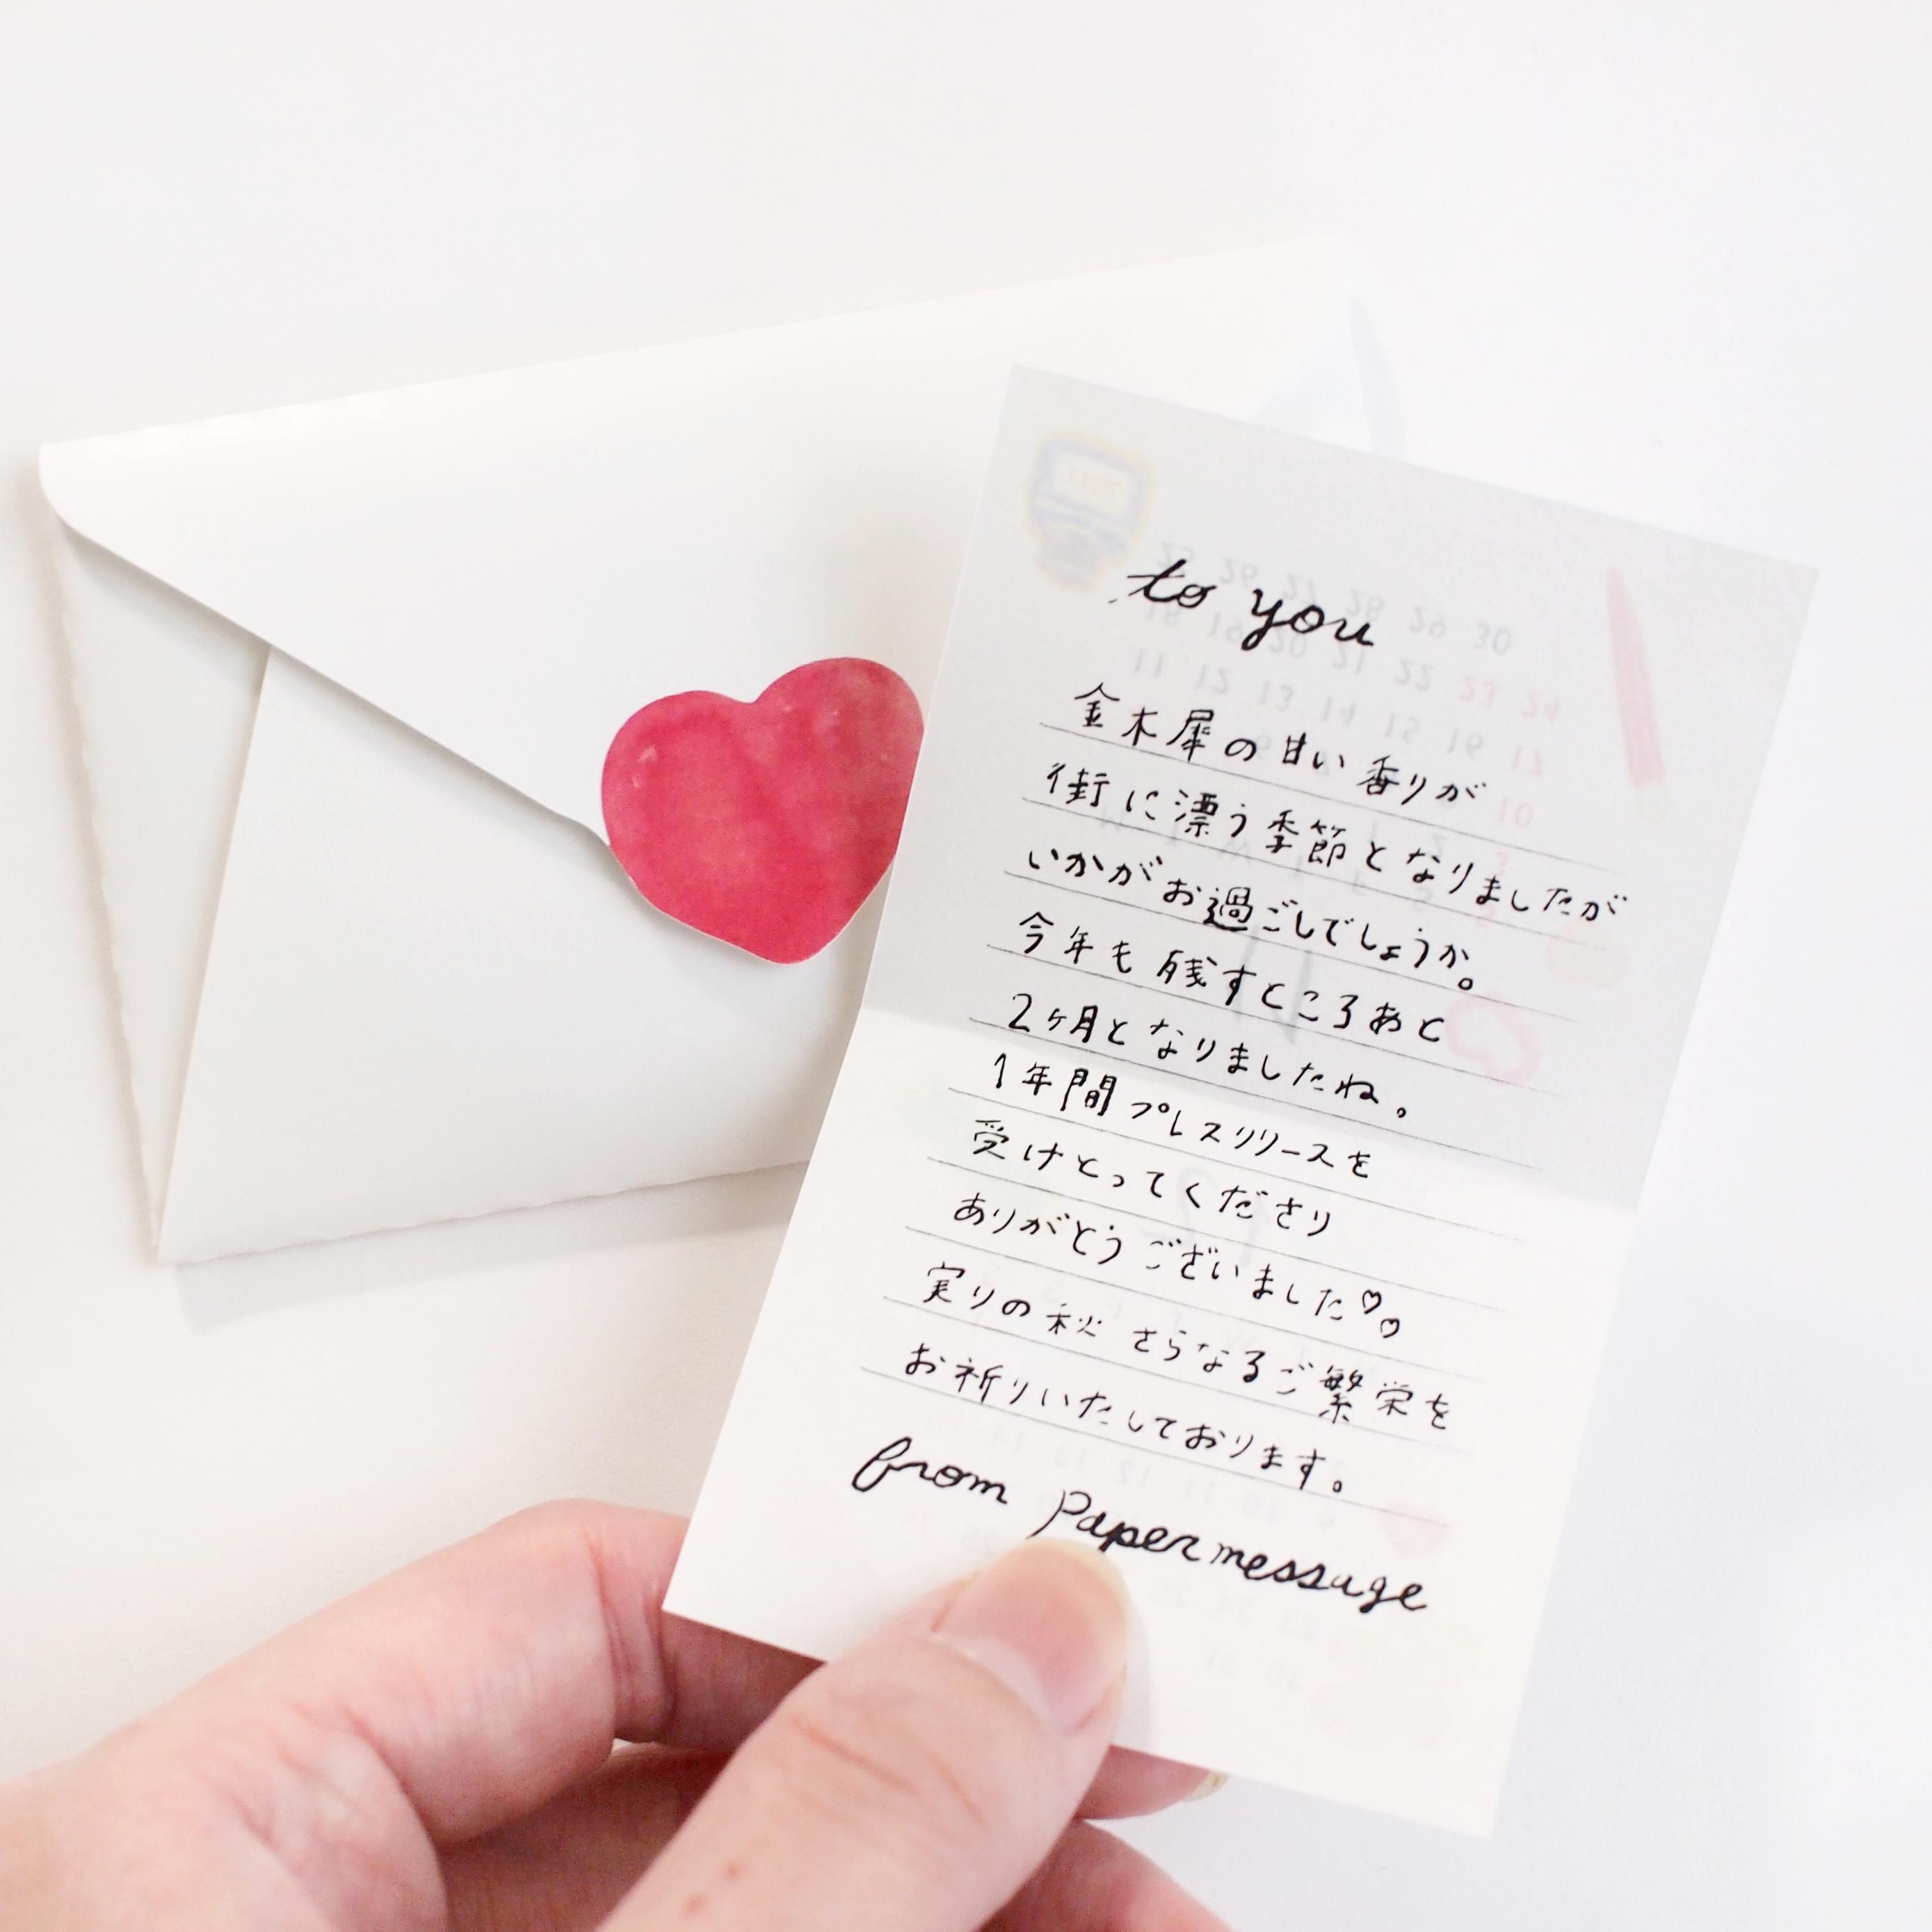 to you
金木犀の甘い香りが
街に漂う季節となりましたが
いかがお過ごしでしょうか。
今年も残すところあと
2ヶ月となりましたね。
1年間プレスリリースを
受けとってくださり
ありがとうございました♡♡
実りの秋 さらなるご繁栄を
お祈りいたしております。
from Papermessage